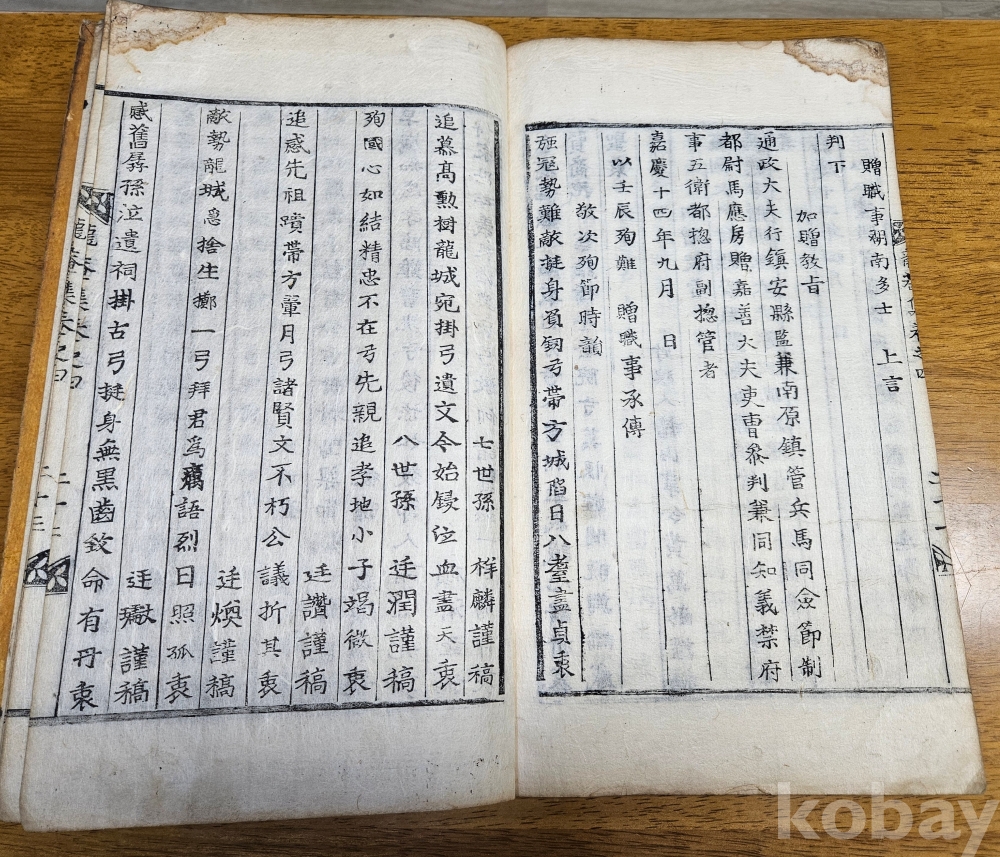 贈職事湖南多士 上言
判下
加贈教旨
通政大夫行鎮安縣監兼南原鎮管兵馬同僉節制
都尉馬應房贈嘉善大夫吏曹叅判兼同知義禁府
事五衛都摠府副摠管者
嘉慶十四年九月 日
以壬辰殉難 贈職事承傳
敬次殉節時韻
強冦勢難敵挺身負釰弓帶方城陷日八耋盡貞衷
七世孫 祥麟謹稿
追慕高勳樹龍城宛掛弓遺文今始鋟泣血盡天衷
八世孫 廷潤謹稿
殉國心如結精忠不在弓先親追孝地小子竭微衷
廷讚謹稿
追感先祖蹟帶方暈月弓諸賢文不朽公議折其衷
廷煥謹稿
敵勢龍城急捨生擲一弓拜君爲癘語烈日照孤衷
廷瓛謹稿
感舊孱孫泣遺祠掛古弓挺身無黑齒敛命有丹衷
龍菴集卷之四
二十二
kobay